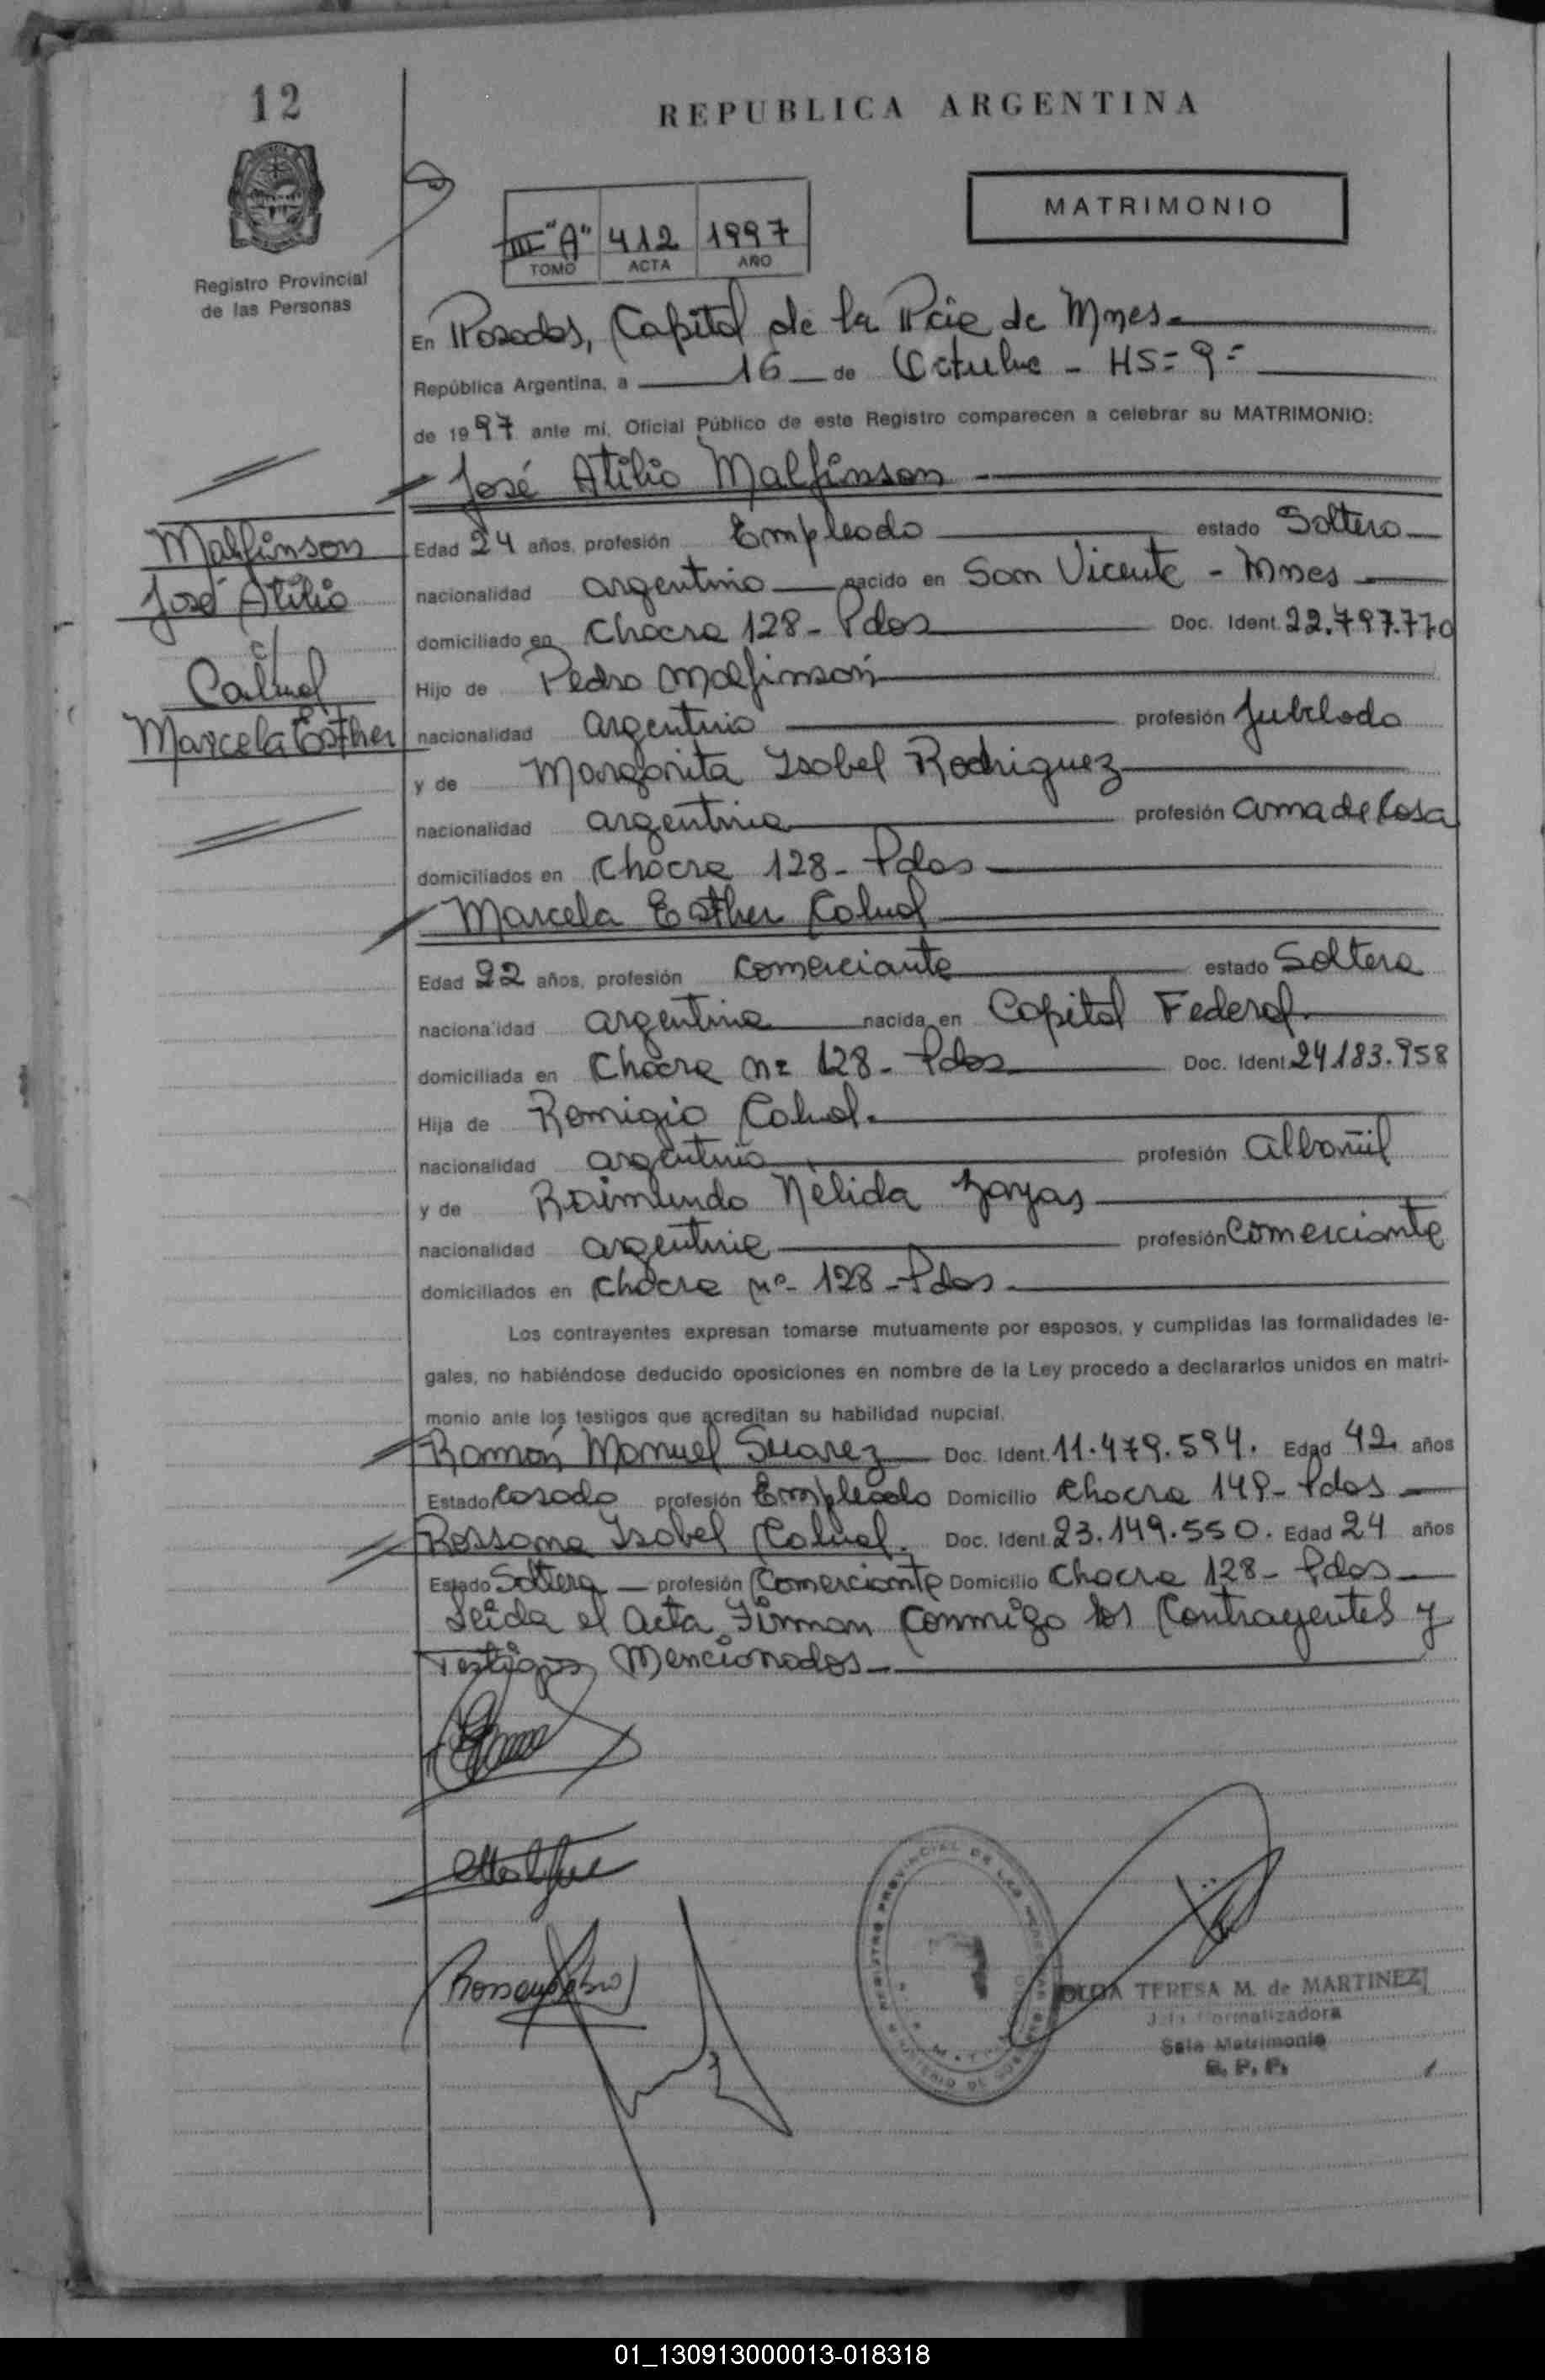 12
REPUBLICA ARGENTINA
Registro Provincial
de las Personas
MATRIMONIO
III "A" 412 1997
TOMO ACTA AÑO
En Posadas, Capital de la Pcia de Mnes.
República Argentina, a 16 de Octubre - HS= 9=
de 1997 ante mi, Oficial Público de este Registro comparecen a celebrar su MATRIMONIO:
José Atilio Malfinson
Malfinson
José Atilio
c/
Cabral
Marcela Esther
Edad 24 años, profesión Empleado estado Soltero
nacionalidad argentino nacido en San Vicente - Mnes
domiciliado en Chacra 128 - Pdas Doc. Ident. 22.797.770
Hijo de Pedro Malfinson
nacionalidad argentino profesión Jubilado
y de Margarita Isabel Rodriguez
nacionalidad argentina profesión ama de Casa
domiciliados en Chacra 128 - Pdas
Marcela Esther Cabral
Edad 22 años, profesión Comerciante estado Soltera
nacionalidad argentina nacida en Capital Federal.
domiciliada en Chacra nº 128 - Pdas Doc. Ident 24.183.958
Hija de Remigio Cabral.
nacionalidad argentino profesión albañil
y de Raimunda Nélida Zayas
nacionalidad argentina profesión Comerciante
domiciliados en Chacra nº 128 - Pdas
Los contrayentes expresan tomarse mutuamente por esposos, y cumplidas las formalidades le-
gales, no habiéndose deducido oposiciones en nombre de la Ley procedo a declararlos unidos en matri-
monio ante los testigos que acreditan su habilidad nupcial.
Ramón Manuel Suarez Doc. Ident. 11.479.594. Edad 42 años
Estado Casado profesión Empleado Domicilio Chacra 149 - Pdas
Rossana Isabel Cabral. Doc. Ident. 23.149.550. Edad 24 años
Estado Soltera profesión Comerciante Domicilio Chacra 128 - Pdas
Leida el acta, Firman conmigo los Contrayentes y
Testigos Mencionados
OLGA TERESA M. de MARTINEZ
Normalizadora
Sala Matrimonio
R. P. P.
01_130913000013-018318